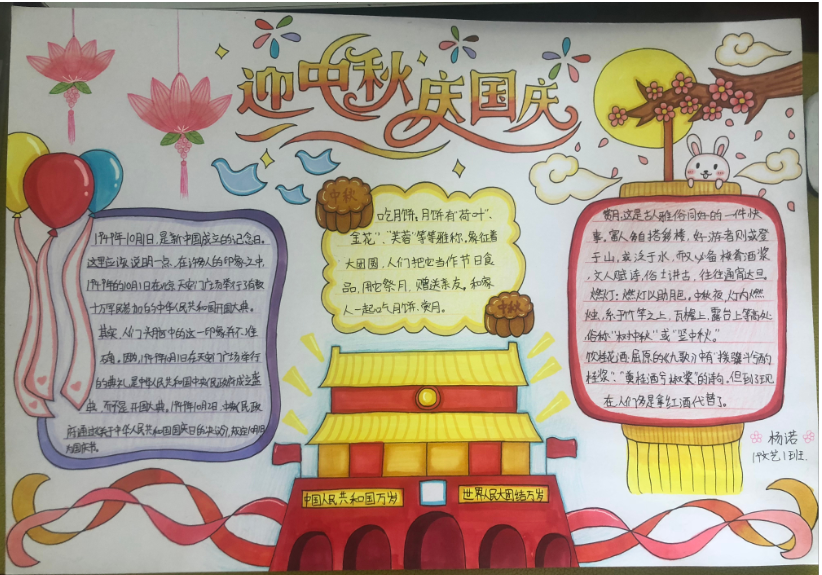 迎中秋庆国庆
1949年10月1日,是新中国成立的纪念日。
这里应该说明一点,在许多人的印象之中,
1949年的10月1日在北京天安门广场举行了有数
十万军民参加的中华人民共和国开国大典。
其实,人们头脑中的这一印象并不准
确。因为,1949年10月1日在天安门广场举行
的典礼是中华人民共和国中央人民政府成立盛
典,而不是开国大典。1949年10月2日,中央人民政
府通过《关于中华人民共和国国庆日的决议》,规定
为国庆节。
中秋
吃月饼:月饼有"荷叶"、
金花"、"芙蓉"等等雅称,象征着
大团圆,人们把它当作节日食
品,用它祭月、赠送亲友。和家
人一起吃月饼、赏月。
中秋
这是古人雅俗同好的一件快
事,富人自搭彩楼,好游者则或登
于山,或泛于水,而必备楼着酒浆
,文人赋诗,俗士讲古,往往通宵达旦。
燃灯:燃灯以助月色。中秋夜,灯内燃
烛,系于竹竿之上,瓦檐上、露台上等高处
俗称"树中秋"或"竖中秋"。
饮桂花酒:屈原的《九歌》中有"援骥斗兮酌
桂浆"、"奠桂酒兮椒浆"的诗句。但到了现
在,人们多是拿红酒代替了。
中国人民共和国万岁
世界人民大团结万岁
杨诺
19文艺1班.